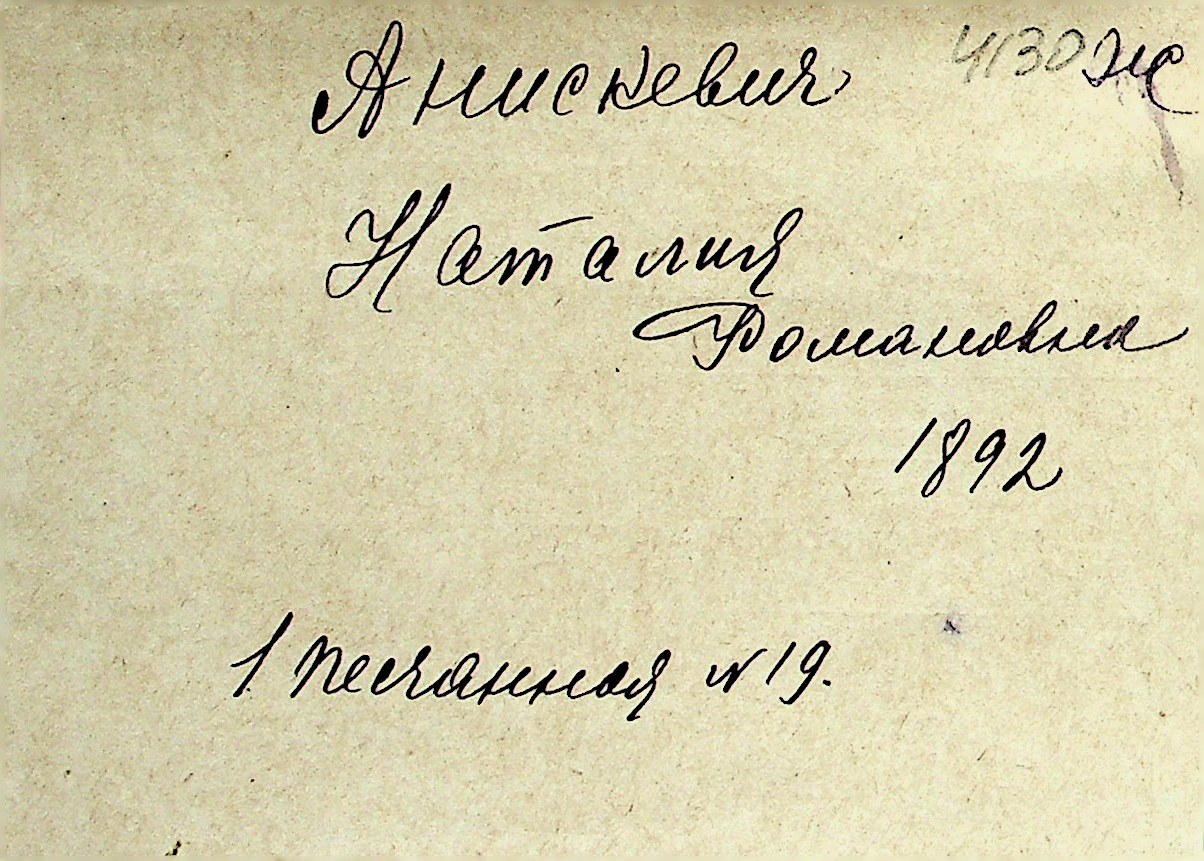 4130 Ж
Анискевич
Наталия
Романовна
1892
1 Песчанная № 19.